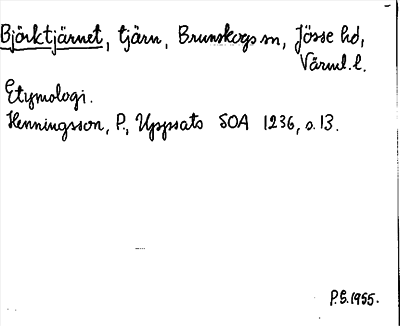 Björktjärnet, tjärn, Brunskogs sn, Jösse hd,
Värml. l.
Etymologi.
Henningsson, P., Uppsats SOA 1236, s. 13.
P.E. 1955.